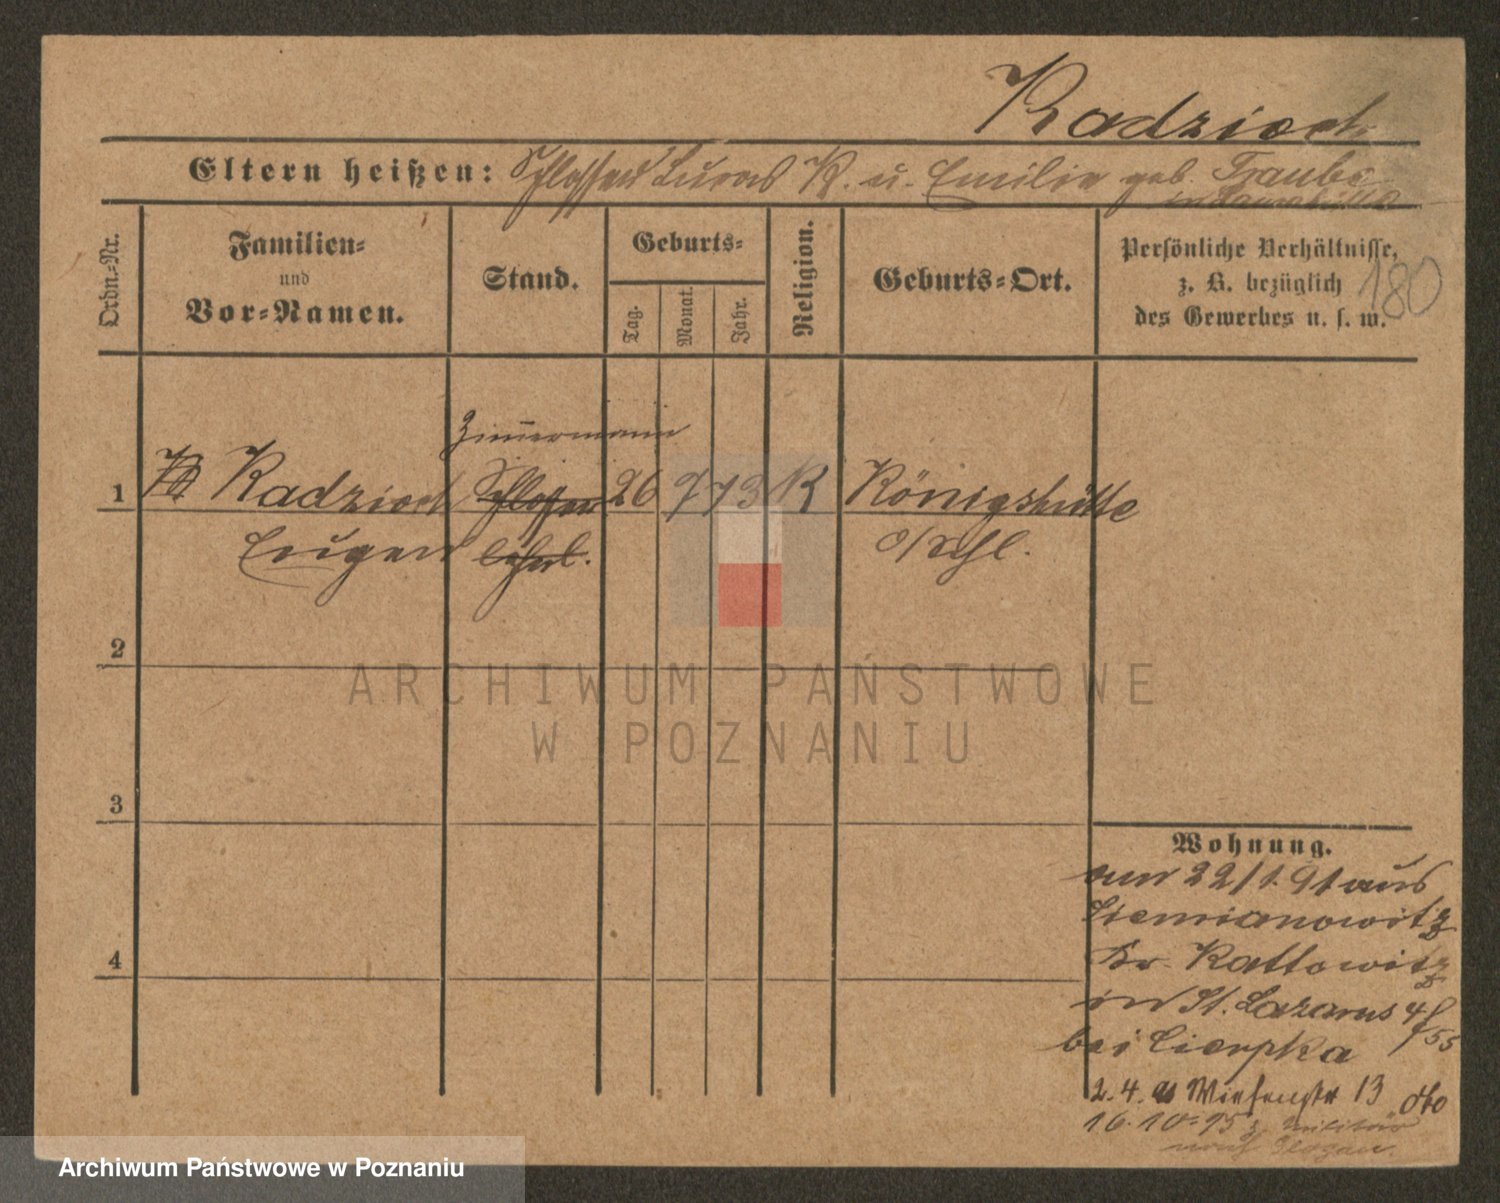 Radzioch
Eltern heißen: Schlosser Lucas R. u. Emilie geb. Traube
in Laurahütte
Ordn.=Nr.
Familien=
und
Vor=Namen.
Stand.
Geburts=
Tag.
Monat.
Jahr.
Religion.
Geburts=Ort.
Persönliche Verhältnisse,
z. B. bezüglich
des Gewerbes u. s. w.
180
Zimmermann
1 Radzioch Schlosser 26 7 73 K Königshütte
Eugen lehrl. O/Schl.
2
3
4
Wohnung.
am 22/1. 91 aus
Siemianowitz
Kr. Kattowitz
in St. Lazarus 4
55
bei Cierpka
2. 4. Wiesenstr 13
16. 10. 95 z. Militär
nach Glogau.
ARCHIWUM PAŃSTWOWE
W POZNANIU
Archiwum Państwowe w Poznaniu